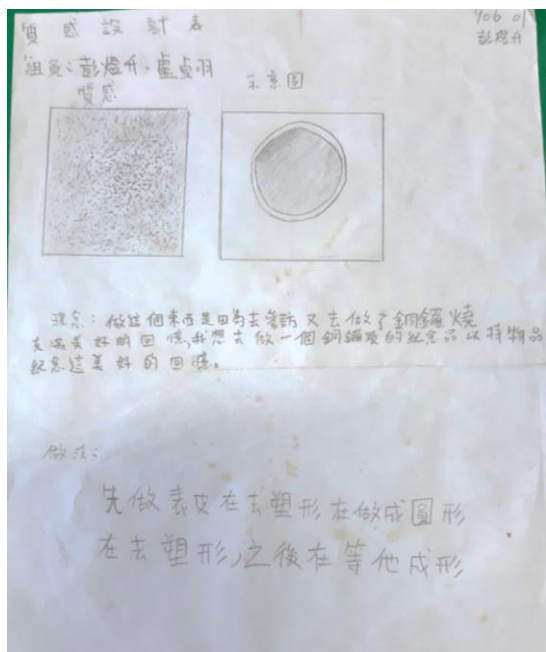 質感設計表
706 01
彭煜升
組員:彭煜升、盧貞羽
質感
示意圖
理念:做這個東西是因為去參訪又去做了銅鑼燒
充滿美好的回憶,我想去做一個銅鑼燒的紀念品以持物品
紀念這美好的回憶。
做法:
先做表皮在去塑形在做成圓形
在去塑形,之後在等他成形